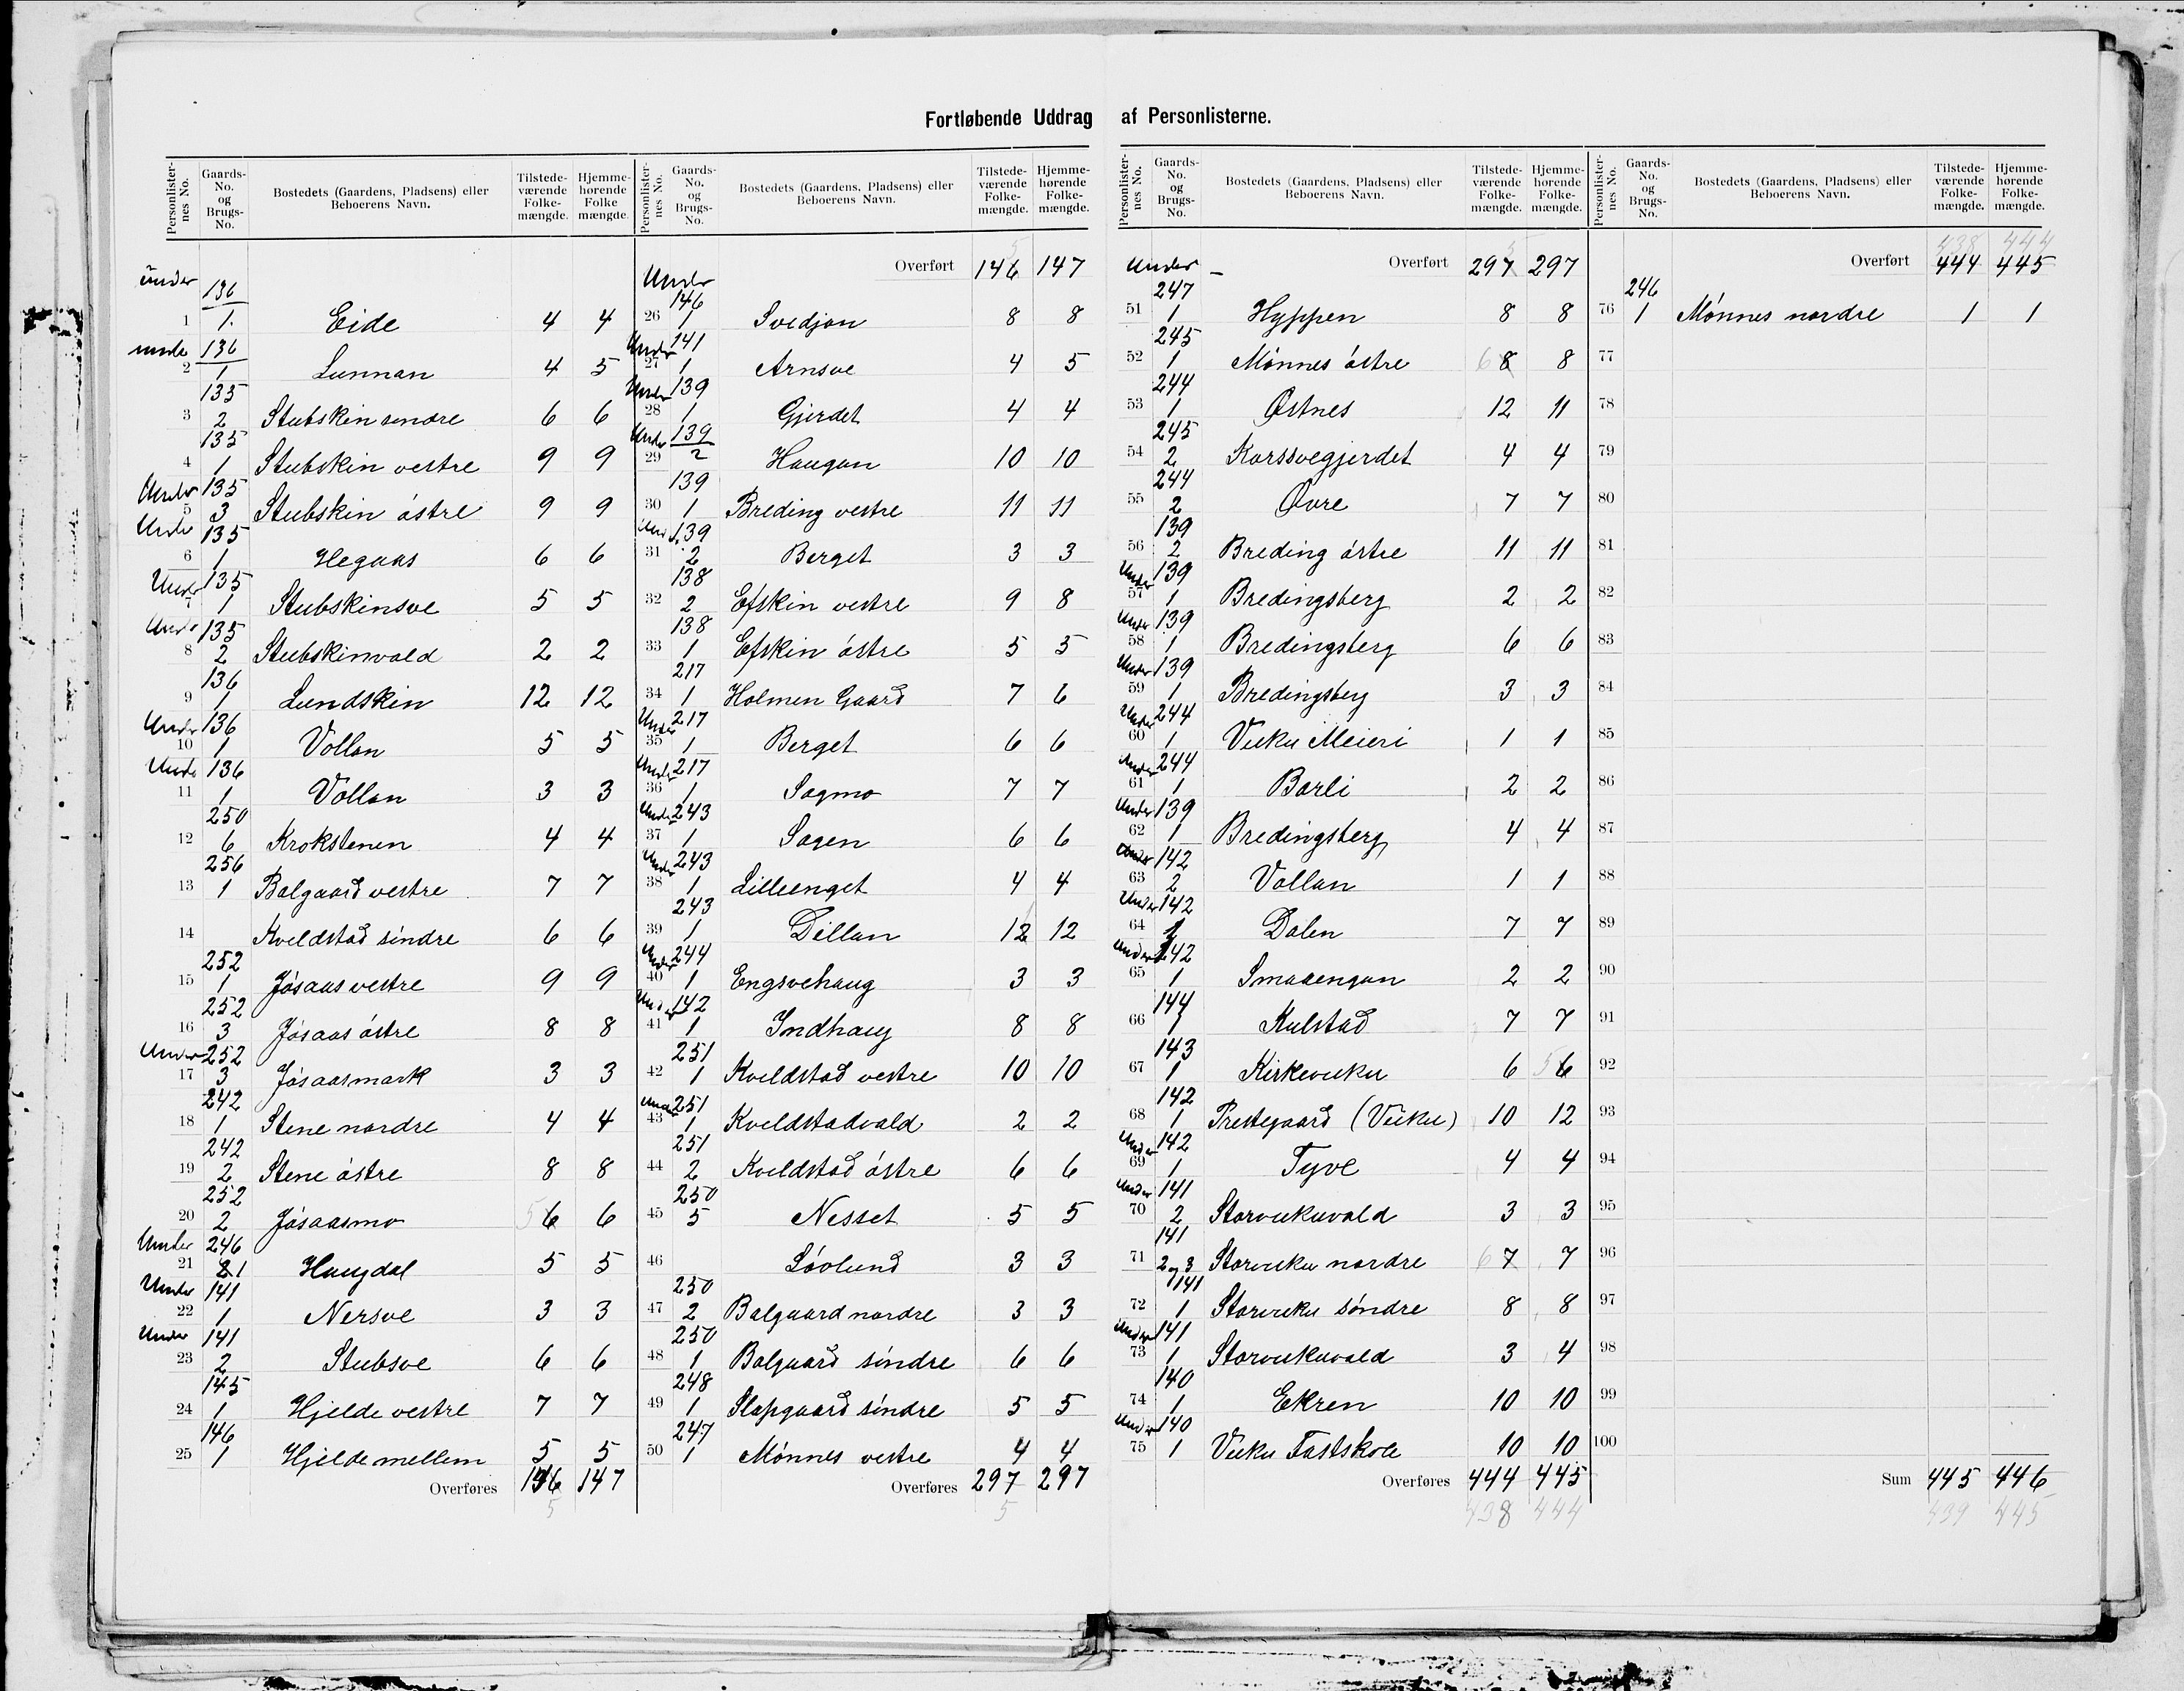 Fortløbende Uddrag af Personlisterne.
Personlisternes No. Gaards-No. og Brugs-No. Bostedets (Gaardens, Pladsens) eller Beboerens Navn. Tilstedeværende Folkemængde. Hjemmehørende Folkemængde.
under 136
1 1. Eide 4 4
unde 136
2 1 Lunnan 4 5
135
3 2 Stubskin søndre 6 6
135
4 1 Stubskin vestre 9 9
Under 135
5 3 Stubskin östre 9 9
Under 135
6 1 Hegaas 6 6
Under 135
7 1 Stubskinsve 5 5
Under 135
8 2 Stubskinvald 2 2
136
9 1 Lundskin 12 12
Under 136
10 1 Vollan 5 5
Unde 136
11 1 Vollan 3 3
250
12 6 Krokstenen 4 4
256
13 1 Balgaard vestre 7 7
14 Kveldstad söndre 6 6
252
15 1 Jösaas vestre 9 9
252
16 3 Jösaas östre 8 8
Under 252
17 3 Jösaasmark 3 3
242
18 1 Stene nordre 4 4
242
19 2 Stene östre 8 8
252
20 2 Jösaasmo 5 6 6
Under 246
21 1 Haugdal 5 5
Under 141
22 1 Nersve 3 3
Under 141
23 2 Stubsve 6 6
145
24 1 Hjelde vestre 7 7
146
25 1 Hjelde mellem 5 5
Overføres 146 147
5
5
Overført 146 147
Under 146
26 1 Svedjan 8 8
Under 141
27 1 Arnsve 4 5
Under 139
28 1 Gjerdet 4 4
Under 139
29 2 Haugan 10 10
139
30 1 Breding vestre 11 11
Und. 139
31 2 Berget 3 3
138
32 2 Efskin vestre 9 8
138
33 1 Efskin östre 5 5
217
34 1 Holmen Gaard 7 6
Under 217
35 1 Berget 6 6
Under 217
36 1 Sagmo 7 7
Under 243
37 1 Sagen 6 6
Under 243
38 1 Lilleenget 4 4
243
39 1 Dillan 12 12
Under 244
40 1 Engsvehaug 3 3
Under 142
41 1 Indhaug 8 8
251
42 1 Kveldstad vestre 10 10
Under 251
43 1 Kveldstadvald 2 2
251
44 2 Kveldstad östre 6 6
250
45 5 Nesset 5 5
46 Lövlund 3 3
250
47 2 Balgaard nordre 3 3
250
48 1 Balgaard söndre 6 6
248
49 1 Slapgaard söndre 5 5
247
50 1 Mönnes vestre 4 4
Overføres 297 297
5
5
Overført 297 297
Under 247
51 1 Hyppen 8 8
245
52 1 Mönnes östre 6 8 8
244
53 1 Østnes 12 11
245
54 2 Korssvegjerdet 4 4
244
55 2 Øvre 7 7
139
56 2 Breding östre 11 11
Under 139
57 1 Bredingsberg 2 2
Under 139
58 1 Bredingsberg 6 6
Under 139
59 1 Bredingsberg 3 3
Under 244
60 1 Vuku Meieri 1 1
Under 244
61 1 Barli 2 2
Under 139
62 1 Bredingsberg 4 4
Under 142
63 2 Vollan 1 1
Under 142
64 1 Dalen 7 7
Under 142
65 1 Smaaengan 2 2
144
66 1 Kulstad 7 7
143
67 1 Kirkevuku 6 5 6
142
68 1 Prestegaard (Vuku) 10 12
Under 142
69 1 Tyve 4 4
Under 141
70 2 Storvukuvald 3 3
141
71 2 og 3 Storvuku nordre 6 7 7
141
72 1 Storvuku söndre 8 8
Under 141
73 1 Storvukuvald 3 4
140
74 1 Ekren 10 10
Under 140
75 1 Vuku Fastskole 10 10
Overføres 444 445
438 444
438 444
Overført 444 445
246
76 1 Mönnes nordre 1 1
77
78
79
80
81
82
83
84
85
86
87
88
89
90
91
92
93
94
95
96
97
98
99
100
Sum 445 446
439 445